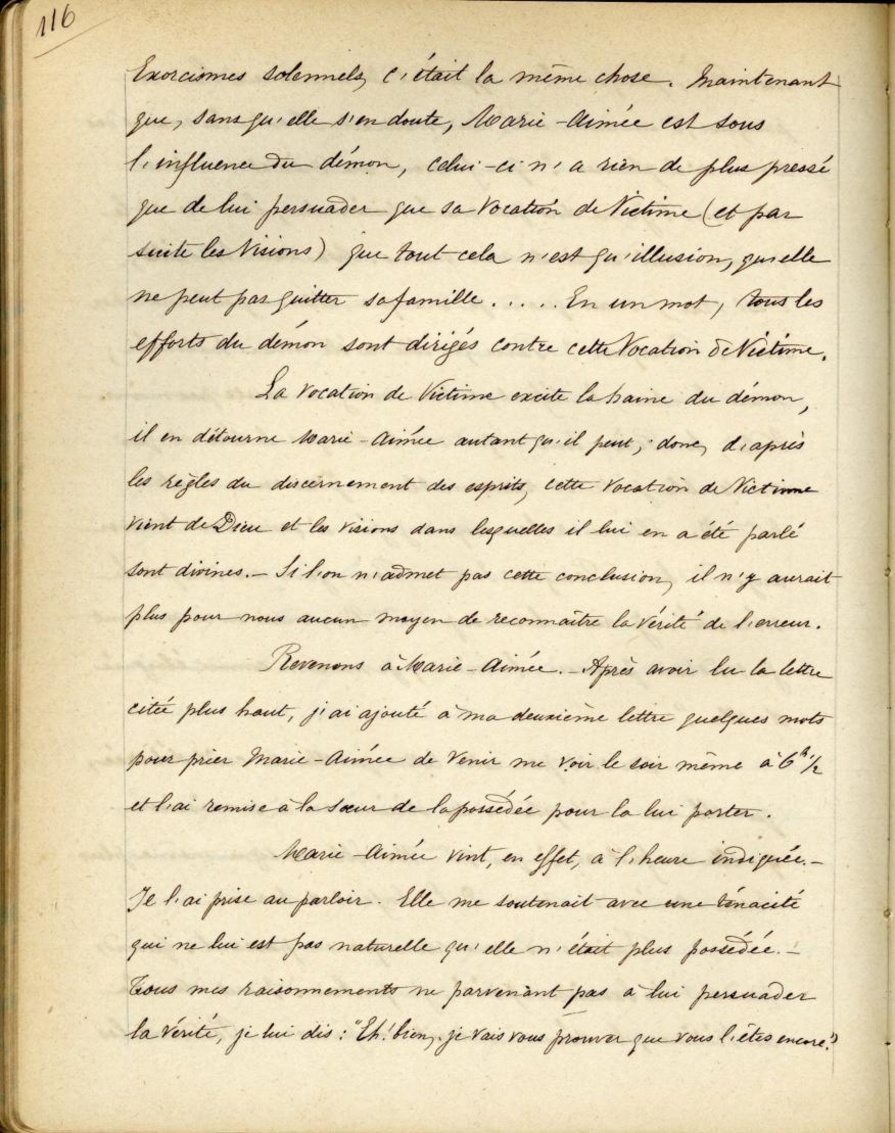 116
Exorcismes solennels, c'était la même chose. Maintenant
que, sans qu'elle s'en doute, Marie-Aimée est sous
l'influence du démon, celui-ci n'a rien de plus pressé
que de lui persuader que sa vocation de Victime (et par
suite les Visions) que tout cela n'est qu'illusion, qu'elle
ne peut pas quitter sa famille..... En un mot, tous les
efforts du démon sont dirigés contre cette Vocation de Victime.
La vocation de Victime excite la haine du démon,
il en détourne Marie-Aimée autant qu'il peut, donc, d'après
les règles du discernement des esprits, cette vocation de Victime
vient de Dieu et les visions dans lesquelles il lui en a été parlé
sont divines. — Si l'on n'admet pas cette conclusion, il n'y aurait
plus pour nous aucun moyen de reconnaître la Vérité de l'erreur.
Revenons à Marie-Aimée. — Après avoir lu la lettre
citée plus haut, j'ai ajouté à ma deuxième lettre quelques mots
pour prier Marie-Aimée de venir me voir le soir même à 6h 1/2
et l'ai remise à la sœur de la possédée pour la lui porter.
Marie-Aimée vint, en effet, à l'heure indiquée. —
Je l'ai prise au parloir. Elle me soutenait avec une ténacité
qui ne lui est pas naturelle qu'elle n'était plus possédée. —
Tous mes raisonnements ne parvenant pas à lui persuader
la vérité, je lui dis : "Eh! bien, je vais vous prouver que vous l'êtes encore."